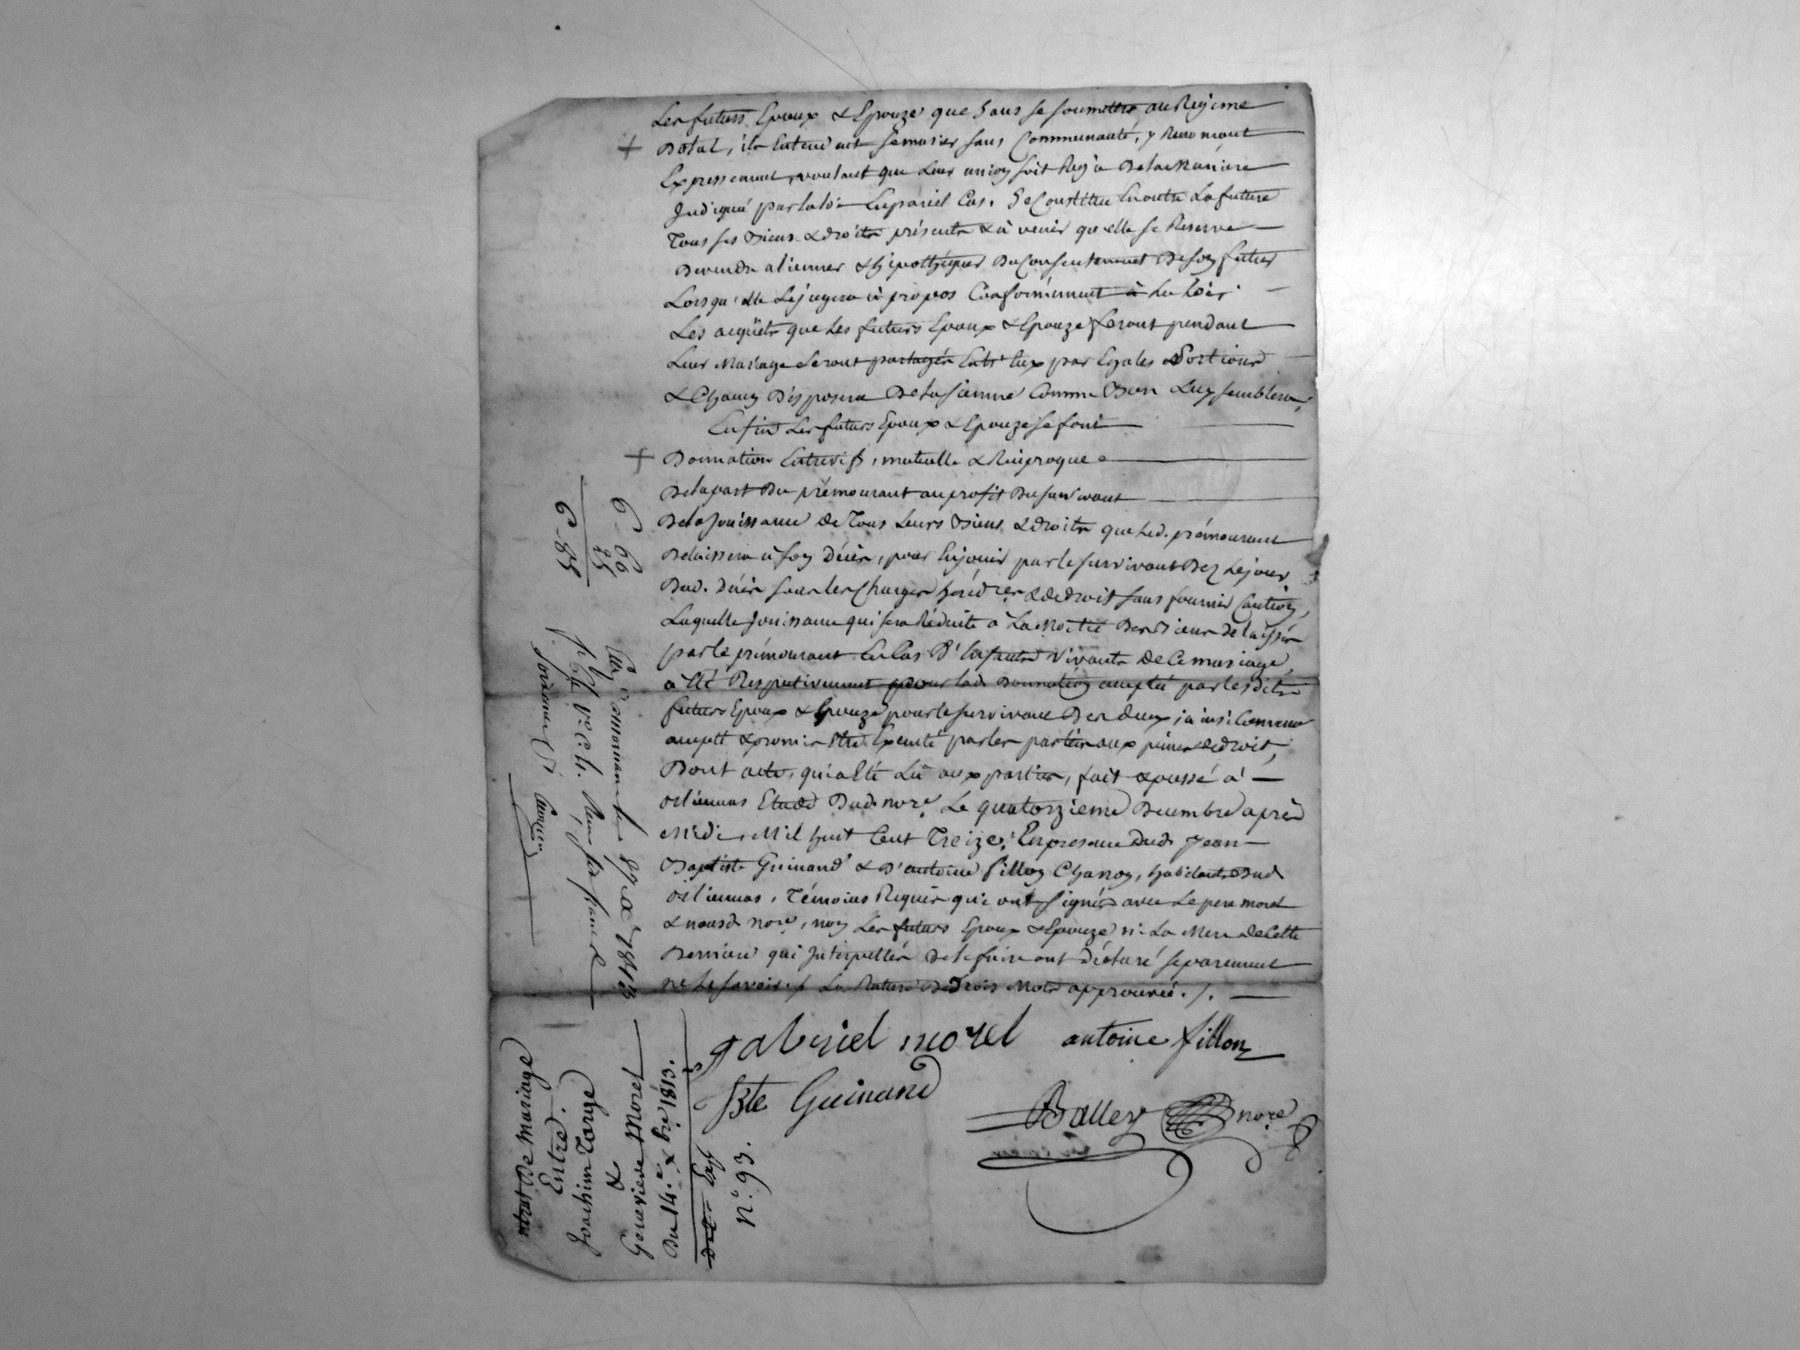 Les futurs Epoux & Epouze que sans se soumettre au Regime
+ Dotal, ils entendent se marier sans Communauté, y Renoncant
Expressement, voulant que Leur union soit Regie De la maniere
Indiqué par la loi En pareil Cas. Se Constitue Enoutre La future
Tous ses Biens & droits présents & à venir qu'elle se Reserve
De vendre aliener & hipothéquer Du Consentement De son futur
Lorsqu'elle Le jugera à propos Conformément à La loi;
Les acquêts que Les futurs Epoux & Epouze feront pendant
Leur Mariage Seront partagés Entr'Eux par Egales Portions
& Chacun Disposera De la sienne Comme Bon Luy semblera;
Enfin Les futurs Epoux & Epouze se font
+ Donnation Entrevifs, mutuelle & Réciproque
De la part Du prémourant au profit Du survivant
De la Jouissance de Tous Leurs Biens & droits que Led. prémourant
Delaissera à son Décès, pour En jouir par le survivant Dez Le jour
Dud. Décès sous les Charges de droit sans fournir Caution,
Laquelle Jouissance qui sera Réduite à La Moitié Des Biens delaissés
par le prémourant En Cas D'Enfants Vivants de Ce mariage,
a Eté Respectivement pour lad. Donnation acceptée par lesdits
futurs Epoux & Epouze pour le survivant Des deux; ainsi Convenu
accepté & promis Etre Executé par les parties aux peines de droit,
Dont acte, qui a Eté Lû aux parties, fait & passé à
Etude Dud. nore. Le quatorzieme Decembre après
Midi Mil huit Cent Treize; En presence dud. Jean
Baptiste Guinand & D'antoine fillon Charron, habitants Dud.
Témoins Requis qui ont signés avec Le pere morel
& nousd. nore, non Les futurs Epoux & Epouze ni La Mere de Cette
Derniere qui Interpellés De le faire ont déclaré separement
ne Le savoir./. La Rature De Trois Mots approuvée./.
gabriel morel antoine fillon
Bte Guinand
Balley nore
6 66
6 85
1813
De Mariage
Entre
Joachim Targe
&
Genevieve Morel
Du 14.e Xbre 1813.
Exp
N.º 93.